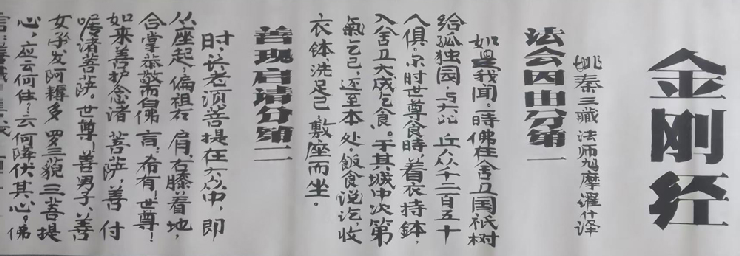 金刚经
姚秦三藏法师鸠摩罗什译
法会因由分第一
如是我闻，時佛住舍卫国祇树
给孤独园，与大比丘众千二百五十
人俱，尔时世尊食時，着衣持鉢，
入舍卫大城乞食。于其城中次第
乞已，还至本处，飯食讫收
衣鉢，洗足已，敷座而坐．
善现启请分第二
時，长老须菩提在大众中，即
从座起，偏袒右肩，右膝着地，
合掌恭敬而白佛言，希有世尊！
如来善护念诸菩萨，善付
嘱诸菩萨，世尊，善男子，善
女子发阿耨多罗三藐三菩提
心，应云何住，云何降伏其心。佛